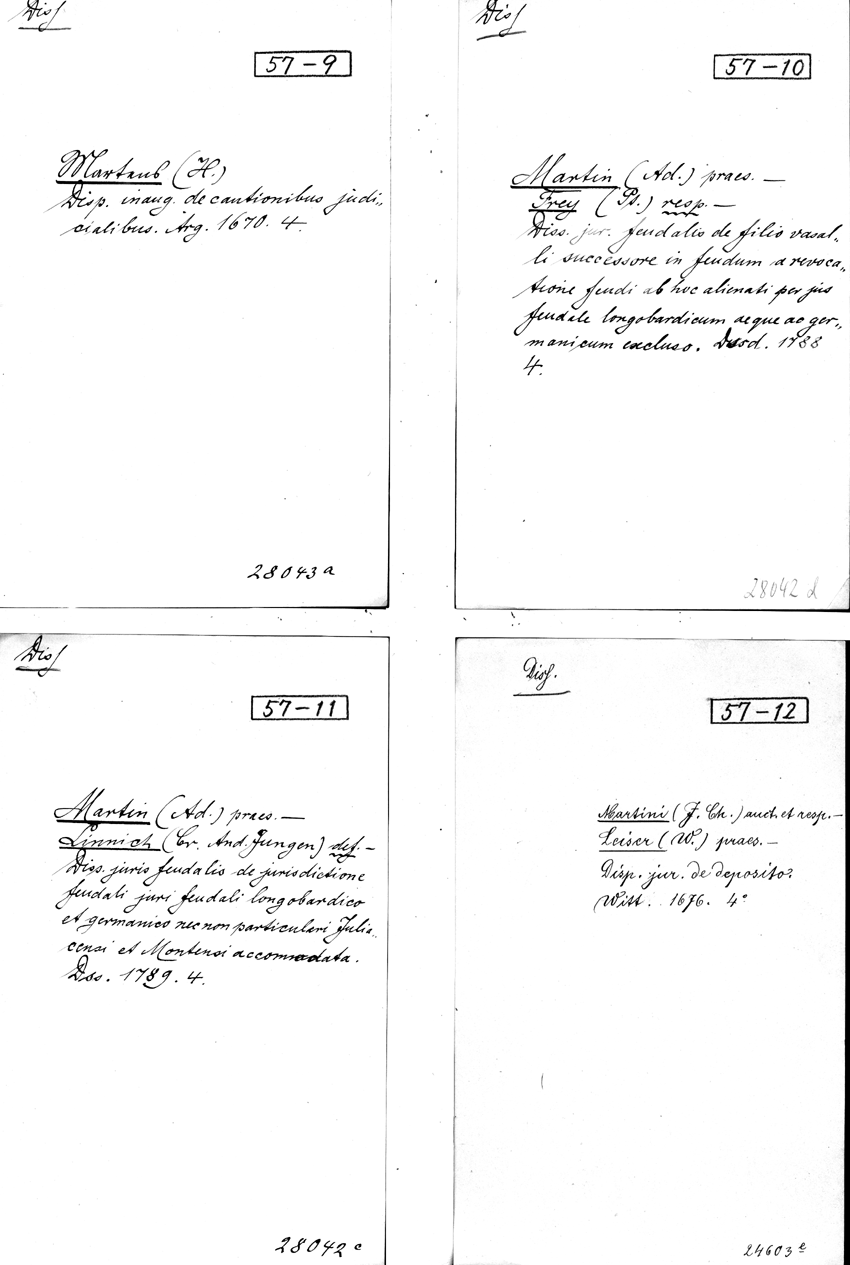 Diss
57-9
Martens (H.)
Disp. inaug. de cautionibus judi„
cialibus. Arg. 1670. 4.
28043 a
Diss
57-10
Martin (Ad.) praes. —
Frey (Pt.) resp. —
Diss. jur. feudalis de filio vasal„
li successore in feudum a revoca„
tione feudi ab hoc alienati per jus
feudale longobardicum aeque ac ger„
manicum excluso. Dusd. 1788
4.
28042 d
Diss
57-11
Martin (Ad.) praes. —
Linnich (Cr. And. Jungen) def. —
Diss. juris feudalis de jurisdictione
feudali juri feudali longobardico
et germanico nec non particulari Julia„
censi et Montensi accomodata.
Dss. 1789. 4.
28042 c
Diss.
57-12
Martini (J. Ch.) auct. et resp. —
Leiser (W.) praes. —
Disp. jur. de deposito.
Witt. 1676. 4°
24603 e